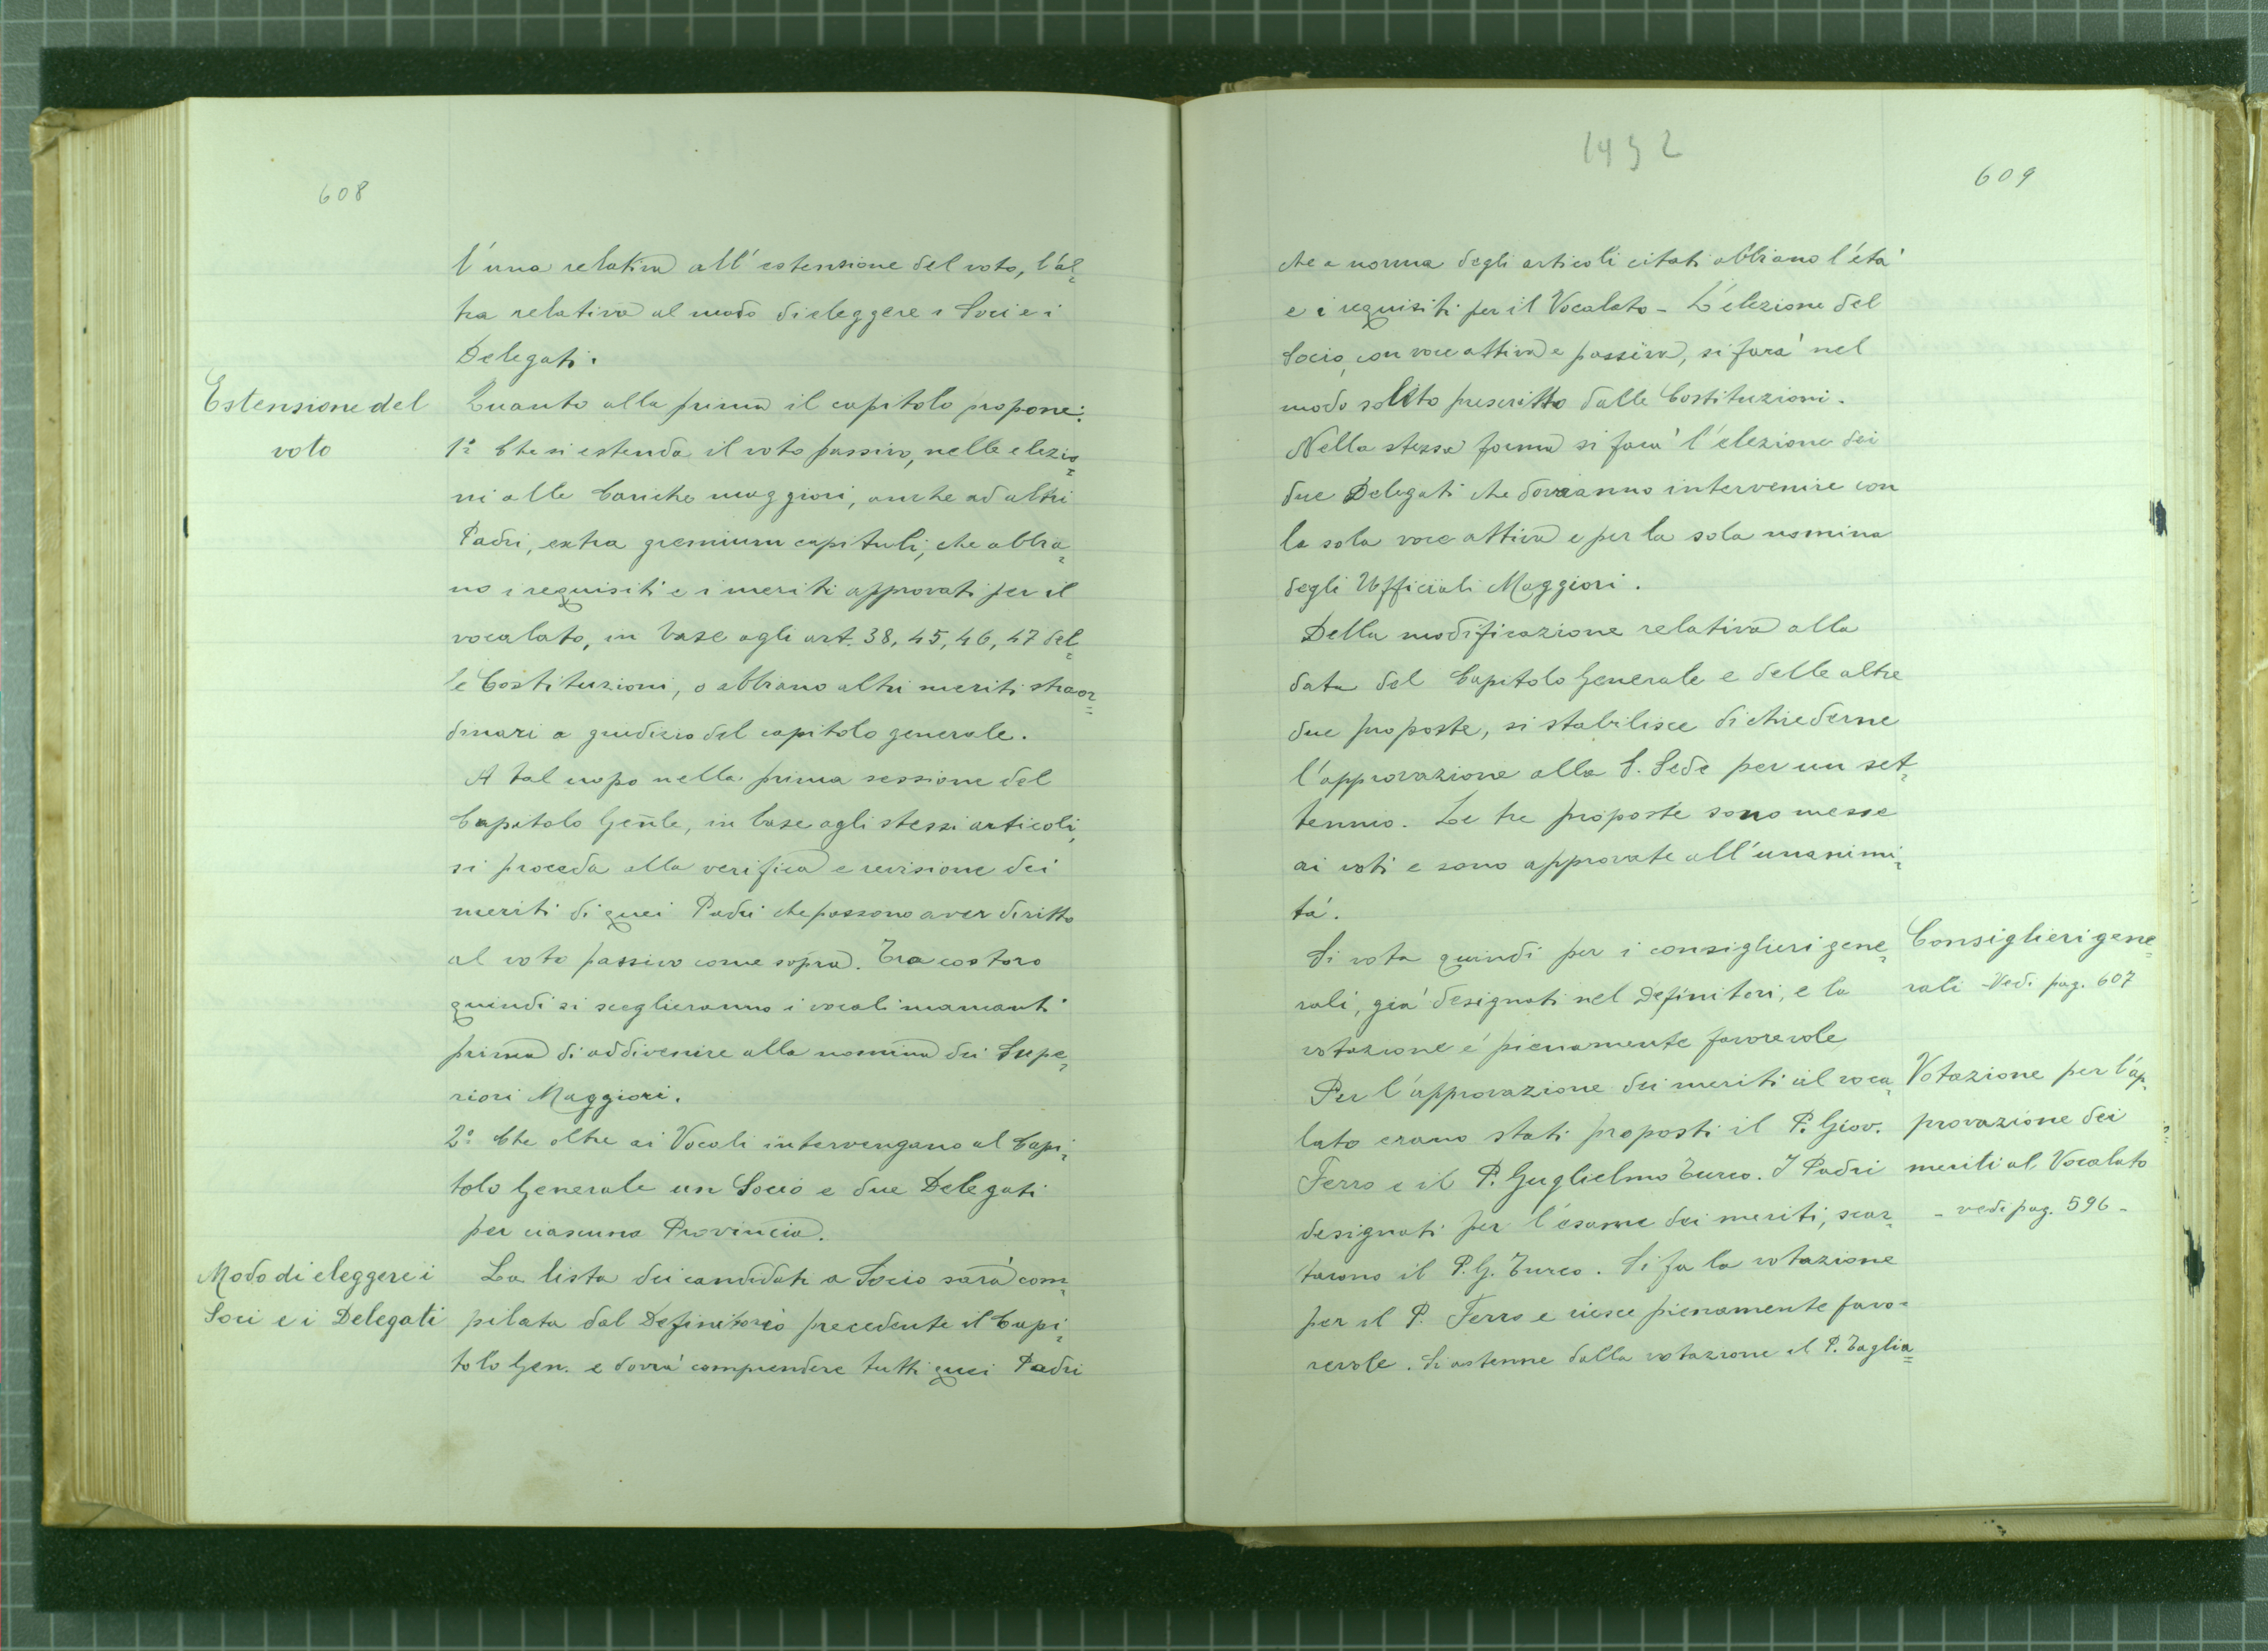 608
l'una relativa all'estensione del voto, l'al=
tra relativa al modo di eleggere i Soci e i
Delegati.
Estensione del
voto
Quanto alla prima il capitolo propone:
1º Che si estenda il voto passivo, nelle elezio=
ni alle Cariche maggiori, anche ad altri
Padri, extra gremium capituli, che abbia=
no i requisiti e i meriti approvati per il
vocalato, in base agli art. 38, 45, 46, 47 del=
le Costituzioni, o abbiano altri meriti straor=
dinari a giudizio del capitolo generale.
A tal uopo nella prima sessione del
Capitolo Gen̄le, in base agli stessi articoli,
si proceda alla verifica e revisione dei
meriti di quei Padri che possono aver diritto
al voto passivo come sopra. Tra costoro
quindi si sceglieranno i vocali mancanti
prima di addivenire alla nomina dei Supe=
riori Maggiori.
2º Che oltre ai Vocali intervengano al Capi=
tolo Generale un Socio e due Delegati
per ciascuna Provincia.
Modo di eleggere i
Soci e i Delegati
La lista dei candidati a Socio sarà com=
pilata dal Definitorio precedente il Capi=
tolo Gen. e dovrà comprendere tutti quei Padri
1932
609
che a norma degli articoli citati abbiano l'età
e i requisiti per il Vocalato - L'elezione del
Socio, con voce attiva e passiva, si farà nel
modo solito prescritto dalle Costituzioni.
Nella stessa forma si farà l'elezione dei
due Delegati che dovranno intervenire con
la sola voce attiva e per la sola nomina
degli Ufficiali Maggiori.
Della modificazione relativa alla
data del Capitolo Generale e delle altre
due proposte, si stabilisce di chiederne
l'approvazione alla S. Sede per un set=
tennio. Le tre proposte sono messe
ai voti e sono approvate all'unanimi=
tà.
Si vota quindi per i consiglieri gene=
rali, già designati nel Definitori, e la
votazione è pienamente favorevole
Consiglieri gene=
rali - Vedi pag. 607
Per l'approvazione dei meriti al voca=
lato erano stati proposti il P. Giov.
Ferro e il P. Guglielmo Turco. I Padri
designati per l'esame dei meriti, scar=
tarono il P. G. Turco. Si fa la votazione
per il P. Ferro e riesce pienamente favo=
revole. Si astenne dalla votazione il P. Taglia=
Votazione per l'ap=
provazione dei
meriti al Vocalato
- vedi pag. 596 -